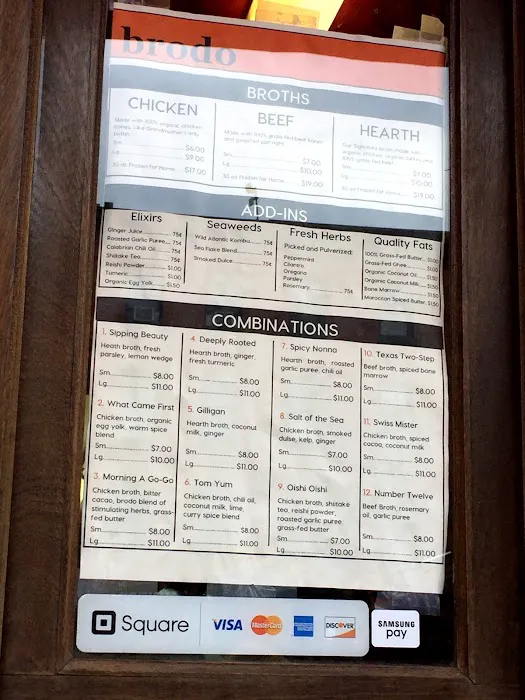 brodo
BROTHS
CHICKEN
Made with 100% organic chicken
bones. Like Grandmother's only
better.
Sm. $6.00
Lg. $9.00
30 oz Frozen for Home $17.00
BEEF
Made with 100% grass-fed beef bones
and
right.
Sm. $7.00
Lg. $10.00
30 oz Frozen for Home $19.00
HEARTH
Our Signature broth made with
organic chicken, organic turkey and
100% grass-fed beef.
Sm. $7.00
Lg. $10.00
30 oz Frozen for Home $19.00
ADD-INS
Elixirs
Ginger Juice 75¢
Roasted Garlic Puree 75¢
Calabrian Chili Oil 75¢
Shiitake Tea 75¢
Reishi Powder $1.00
Turmeric $1.00
Organic Egg Yolk $1.50
Seaweeds
Wild Atlantic Kombu 75¢
Sea Flake Blend 75¢
Smoked Dulce 75¢
Fresh Herbs
Picked and Pulverized:
Peppermint
Cilantro
Oregano
Parsley
Rosemary 75¢
Quality Fats
100% Grass-Fed Butter $1.00
Grass-Fed Ghee $1.00
Organic Coconut Oil $1.50
Organic Coconut Milk $1.50
Bone Marrow $1.50
Moroccan Spiced Butter $1.50
COMBINATIONS
1. Sipping Beauty
Hearth broth, fresh
parsley, lemon wedge
Sm. $8.00
Lg. $11.00
2. What Came First
Chicken broth, organic
egg yolk, warm spice
blend
Sm. $7.00
Lg. $10.00
3. Morning A Go-Go
Chicken broth, bitter
cacao, brodo blend of
stimulating herbs, grass-
fed butter
Sm. $8.00
Lg. $11.00
4. Deeply Rooted
Hearth broth, ginger,
fresh turmeric
Sm. $8.00
Lg. $11.00
5. Gilligan
Hearth broth, coconut
milk, ginger
Sm. $8.00
Lg. $11.00
6. Tom Yum
Chicken broth, chili oil,
coconut milk, lime,
curry spice blend
Sm. $8.00
Lg. $11.00
7. Spicy Nonna
Hearth broth, roasted
garlic puree, chili oil
Sm. $8.00
Lg. $11.00
8. Salt of the Sea
Chicken broth, smoked
dulse, kelp, ginger
Sm. $7.00
Lg. $11.00
9. Oishi Oishi
Chicken broth, shiitake
tea, reishi powder,
roasted garlic puree
grass-fed butter
Sm. $7.00
Lg. $10.00
10. Texas Two-Step
Beef broth, spiced bone
marrow
Sm. $8.00
Lg. $11.00
11. Swiss Mister
Chicken broth, spiced
cocoa, coconut milk
Sm. $8.00
Lg. $11.00
12. Number Twelve
Beef Broth, rosemary
oil, garlic puree
Sm. $8.00
Lg. $11.00
Square
VISA
MasterCard
DISCOVER
SAMSUNG
pay